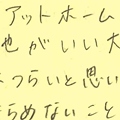 アットホーム
也がいい大
つらいと思い
らめないこと